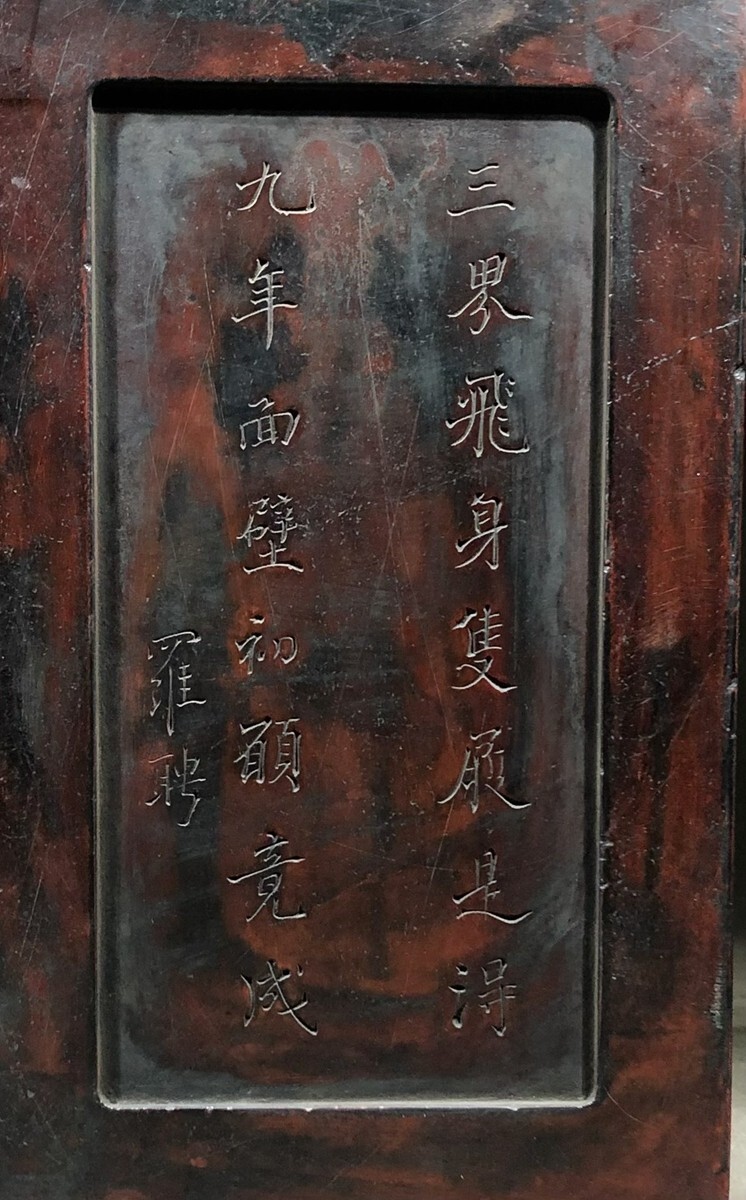 三界飛身隻履是得
九年面壁初願竟成
羅聘